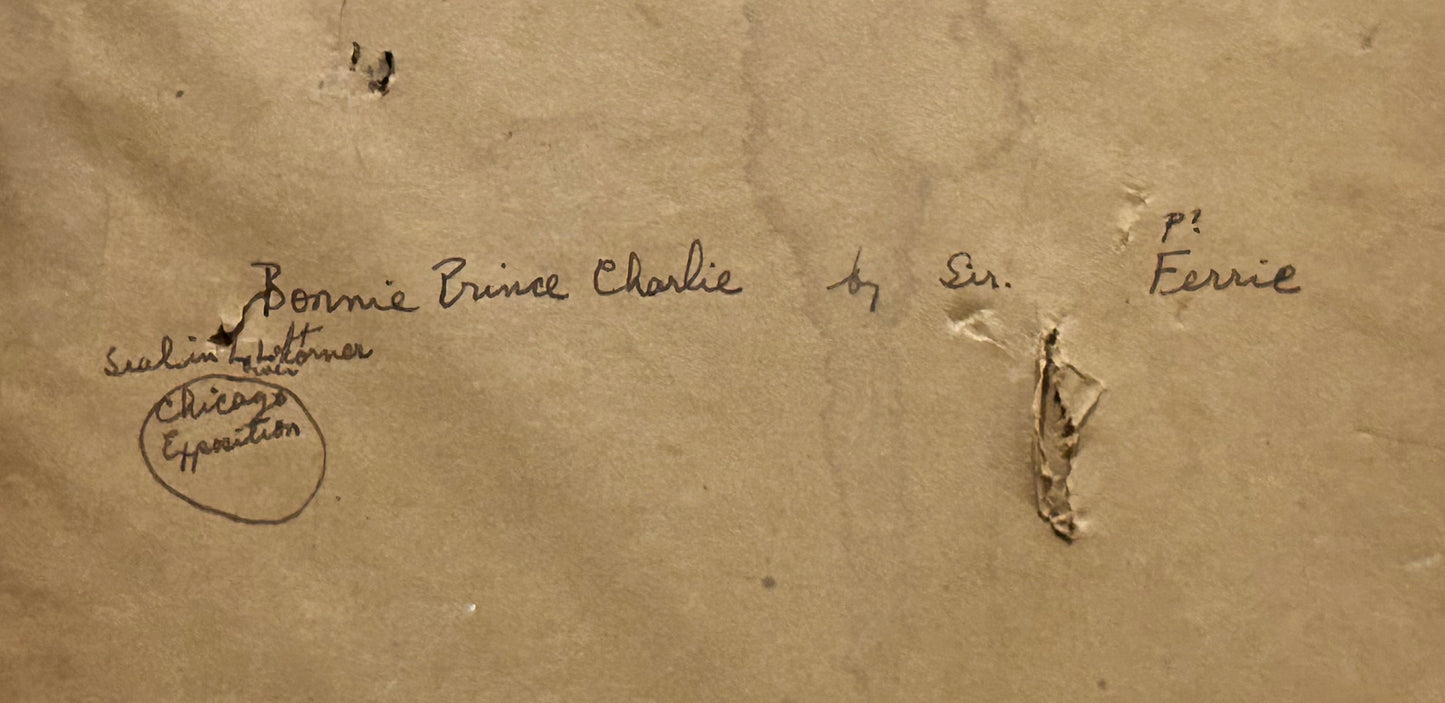 P?
Bonnie Prince Charlie by Sir. Ferrie
Seal in Left Corner
Lower
Chicago
Exposition